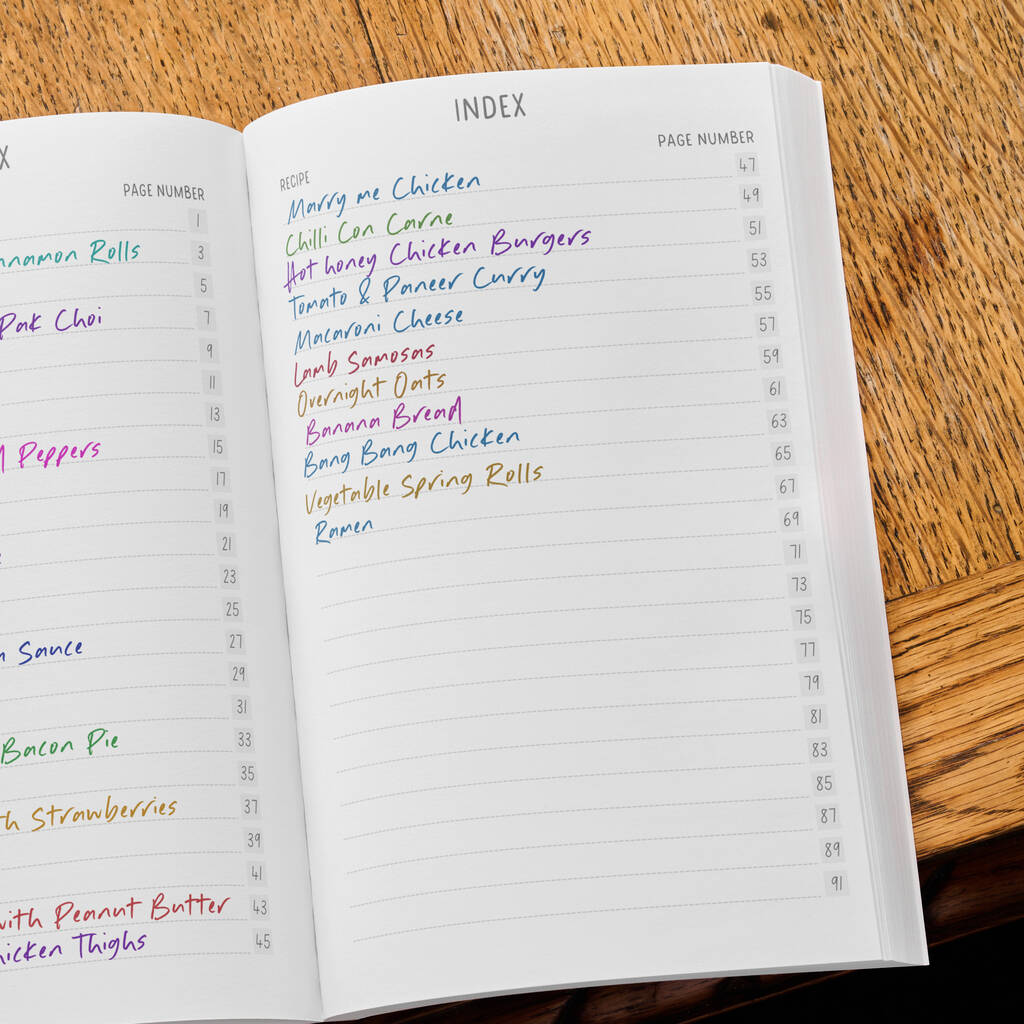 X
PAGE NUMBER
1
nnamon Rolls 3
5
Pak Choi 7
9
11
13
Peppers 15
17
19
21
23
25
Sauce 27
29
31
Bacon Pie 33
35
Strawberries 37
39
41
with Peanut Butter 43
hicken Thighs 45
INDEX
RECIPE PAGE NUMBER
Marry me Chicken 47
Chilli Con Carne 49
Hot honey Chicken Burgers 51
Tomato & Paneer Curry 53
Macaroni Cheese 55
Lamb Samosas 57
Overnight Oats 59
Banana Bread 61
Bang Bang Chicken 63
Vegetable Spring Rolls 65
Ramen 67
69
71
73
75
77
79
81
83
85
87
89
91